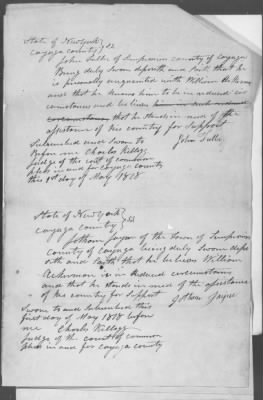 State of New York
Cayuga County } SS
John Fuller of Sempronius County of Cayuga
being duly Sworn deposeth and Saith that he
is personally acquainted with William
and that he knows him to be in reduced cir
cumstances and believes
that he stands in need of the
assistance of his country for Support
Subscribed and Sworn to John Fuller
before me Charles Kellogg
Judge of the court of common
pleas in and for Cayuga County
this 1st day of May 1818
State of New York
Cayuga County } SS
Jotham Jayne of the Town of Sempronius
County of Cayuga being duly Sworn depo
seth and Saith that he believes William
Ackerman is in Reduced circumstances
and that he stands in need of the assistance
of his country for Support Jotham Jayne
Sworn to and Subscribed this
first day of May 1818 before
me Charles Kellogg
Judge of the Court of Common
pleas in and for Cayuga County